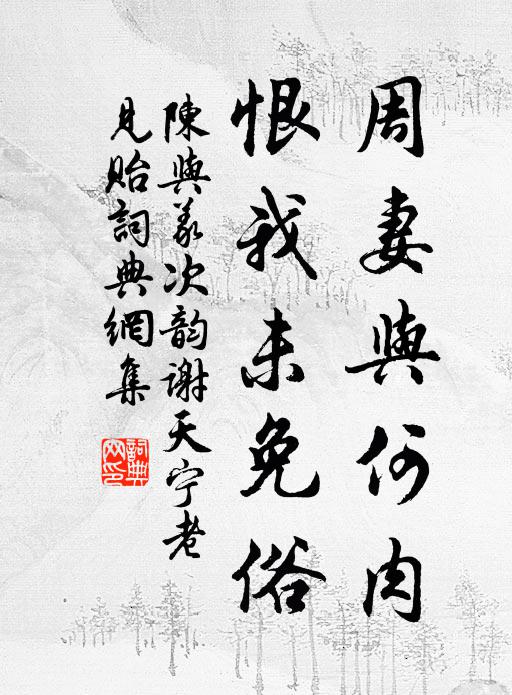 周妻與何肉
恨我未免俗
陳與義次韵謝天宁老
見貽詞典網集
詞典网印